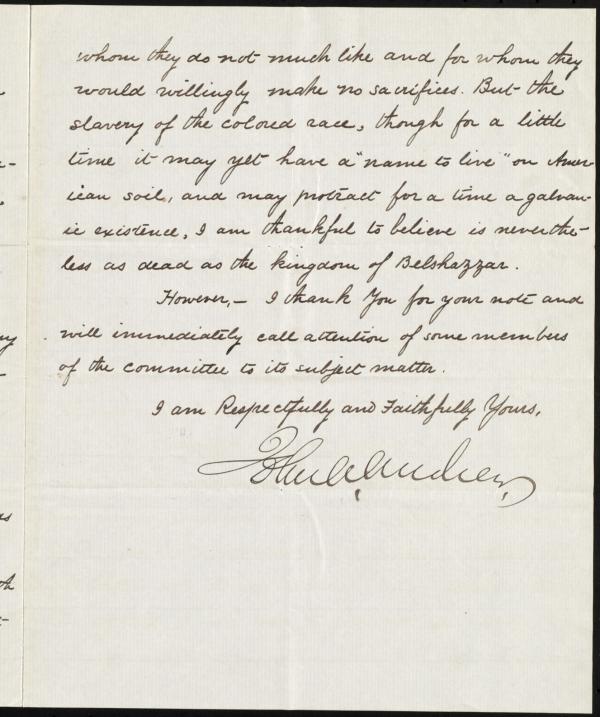 whom they do not much like and for whom they
would willingly make no sacrifices. But the
slavery of the colored race, though for a little
time it may yet have a "name to live" on Amer-
ican soil, and may protract for a time a galvan-
ic existence, I am thankful to believe is neverthe-
less as dead as the kingdom of Belshazzar.
However,— I thank You for your note and
will immediately call attention of some members
of the committee to its subject matter.
I am Respectfully and Faithfully Yours,
John A. Andrew,